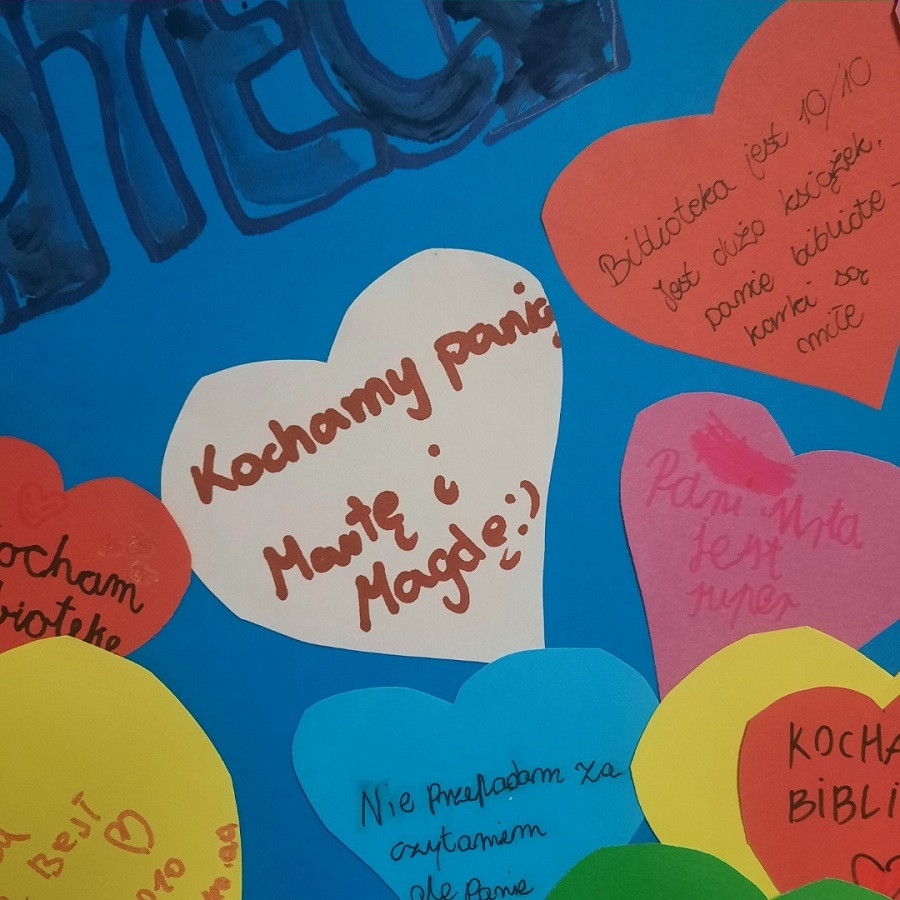 Biblioteka jest 10/10
Jest dużo książek.
panie bibliote-
karki są
miłe
Kochamy panią
Martę i
Magdę:)
Pani Mrta
jest
super
ocham
biotekę
Nie przepadam za
czytaniem
ale Panie
KOCHA
BIBLI
BEST